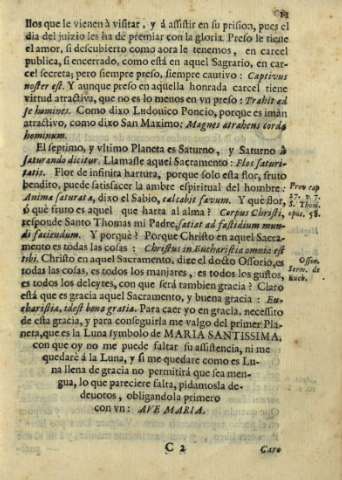 llos que le vienen à visitar, y à assistir en su prision, pues el
dia del juizio les ha de premiar con la gloria. Preso le tiene
el amor, si descubierto como aora le tenemos, en carcel
publica, si encerrado, como està en aquel Sagrario, en car-
cel secreta; pero siempre preso, siempre cautivo: Captivus
noster est. Y aunque preso en aquella honrada carcel tiene
virtud atractiva, que no es lo menos en vn preso: Trahit ad
se homines. Como dixo Ludouico Poncio, porque es iman
atractivo, como dixo San Maximo: Magnes atrahens corda
hominum.
El septimo, y vltimo Planeta es Saturno, y Saturno à
saturando dicitur. Llamase aquel Sacramento: Flos saturi-
tatis. Flor de infinita hartura, porque solo esta flor, fruto
bendito, puede satisfacer la ambre espiritual del hombre:
Anima saturata, dixo el Sabio, calcabit favum. Y que flor,
ò què fruto es aquel que harta al alma? Corpus Christi,
responde Santo Thomas mi Padre, satiat ad fastidium mun-
di faciendum. Y porquè? Porque Christo en aquel Sacra-
mento es todas las cosas: Christus in Eucharistia omnia est
tibi. Christo en aquel Sacramento, dize el docto Ossorio, es
todas las cosas, es todos los manjares, es todos los gustos,
es todos los deleytes, con que serà tambien gracia? Claro
està que es gracia aquel Sacramento, y buena gracia: Eu-
charistia, idest bona gratia. Para caer yo en gracia, necessito
de esta gracia, y para conseguirla me valgo del primer Pla-
neta, que es la Luna symbolo de MARIA SANTISSIMA,
con que oy no me puede faltar su assistencia, ni me
quedarè à la Luna, y si me quedare como es Lu-
na llena de gracia no permitirà que sea men-
gua, lo que pareciere falta, pidamosla de-
deuotos, obligandola primero
con vn: AVE MARIA.
Prov cap
27. v. 7.
S. Thom.
opus. 58.
Ossor.
Serm. de
Euch.
C 2
Caro